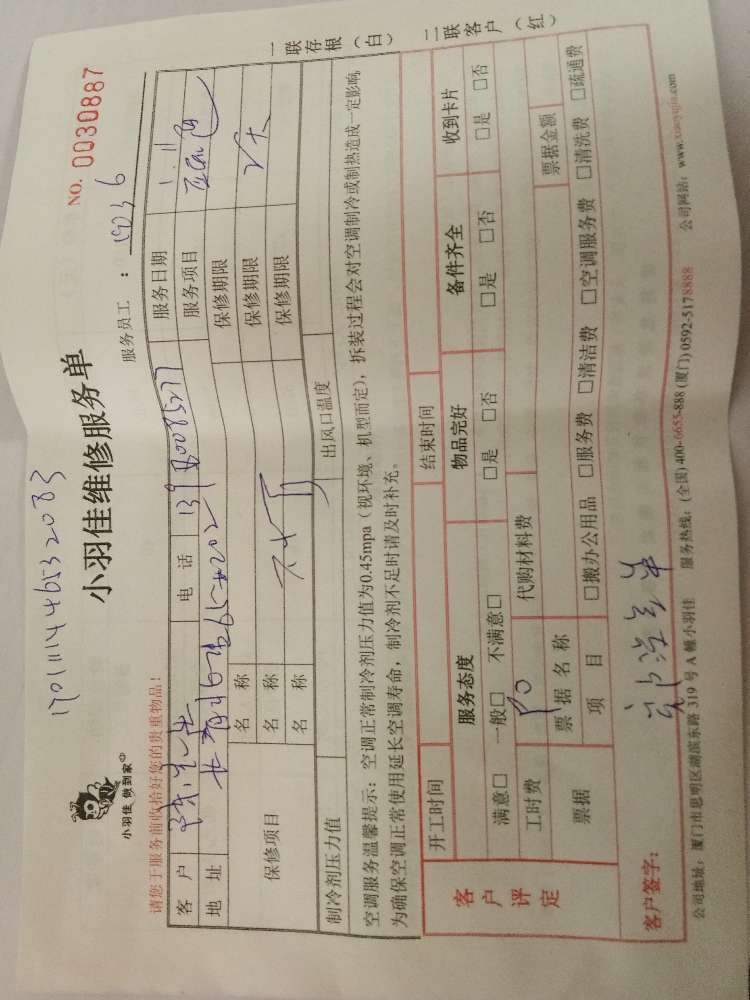 1701111446532083
NO. 0030887
小羽佳 做到家
小羽佳维修服务单
服务员工：
请您于服务前收拾好您的贵重物品！
客户 电话 服务日期 1.11
地址 服务项目
保修项目 名称 保修期限
名称 保修期限
名称 保修期限
制冷剂压力值 出风口温度
空调服务温馨提示：空调正常制冷剂压力值为0.45mpa（视环境、机型而定），拆装过程会对空调制冷或制热造成一定影响
为确保空调正常使用延长空调寿命，制冷剂不足时请及时补充。
一联存根（白） 二联客户（红）
客户评定
开工时间 结束时间
服务态度 物品完好 备件齐全 收到卡片
满意□ 一般□ 不满意□ □是 □否 □是 □否 □是 □否
工时费 代购材料费 票据金额
票据 票据名称
项目 □搬办公用品 □服务费 □清洁费 □空调服务费 □清洗费 □疏通费
客户签字：
公司地址：厦门市思明区湖滨东路319号A幢小羽佳 服务热线：(全国) 400-6655-888 (厦门) 0592-5178888 公司网站：www.xiaoyujia.com